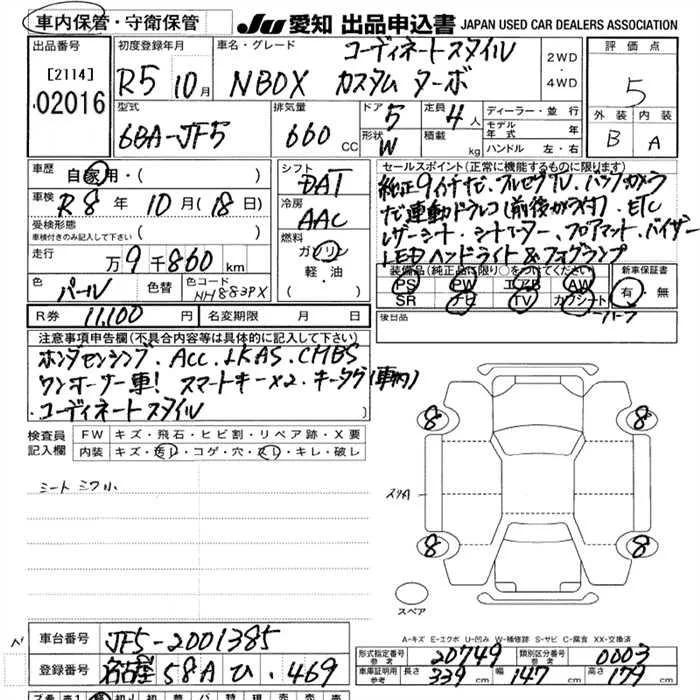 車内保管・守衛保管
JU 愛知 出品申込書 JAPAN USED CAR DEALERS ASSOCIATION
出品番号
[2114]
02016
初度登録年月
R5 10月
車名・グレード
コーディネートスタイル
NBOX カスタム ターボ
2WD
・
4WD
評価点
5
外装 内装
B A
型式
6BA-JF5
排気量
660 CC
ドア 5
形状 W
定員 4人
積載 kg
ディーラー・並行
モデル年式 年
ハンドル 左・右
車歴
自家用・( )
車検 R8年 10月(18日)
受検形態
車検付きのみ記入して下さい ( )
走行 万9千860km
色 パール 色替 色コード NH883PX
シフト
DAT
冷房
AAC
燃料
ガソリン
軽・油
セールスポイント(正常に機能するものに限ります)
純正9インチナビ、フルセグTV、バックカメラ
ナビ連動ドラレコ(前後カメラ付)、ETC
レザーシート、シートヒーター、フロアマット、バイザー
LEDヘンドライト&フォグランプ
装備品(純正品に限り○をつけてください)
PS PW エアB AW
SR ナビ TV カワシート
新車保証書
有・無
R券 11,100円 名変期限 月 日
後日品
注意事項申告欄(不具合内容等は具体的に記入して下さい)
ホンダセンシング、ACC、LKAS、CMBS
ワンオーナー車! スマートキー×2、キータグ(車内)
コーディネートスタイル
検査員記入欄
FW キズ・飛石・ヒビ割・リペア跡・X要
内装 キズ・汚レ・コゲ・穴・スレ・キレ・破レ
シートシワ小
8 8
スリ傷
8 8
スペア
A-キズ E-エクボ U-凹み W-補修跡 S-サビ C-腐食 XX-交換済
車台番号 JF5-2001385
登録番号 名古屋 58A ひ・469
形式指定番号 参考 20749 類別区分番号 参考 0003
車庫証明用 参考 長さ 339cm 幅 147cm 高さ 179cm